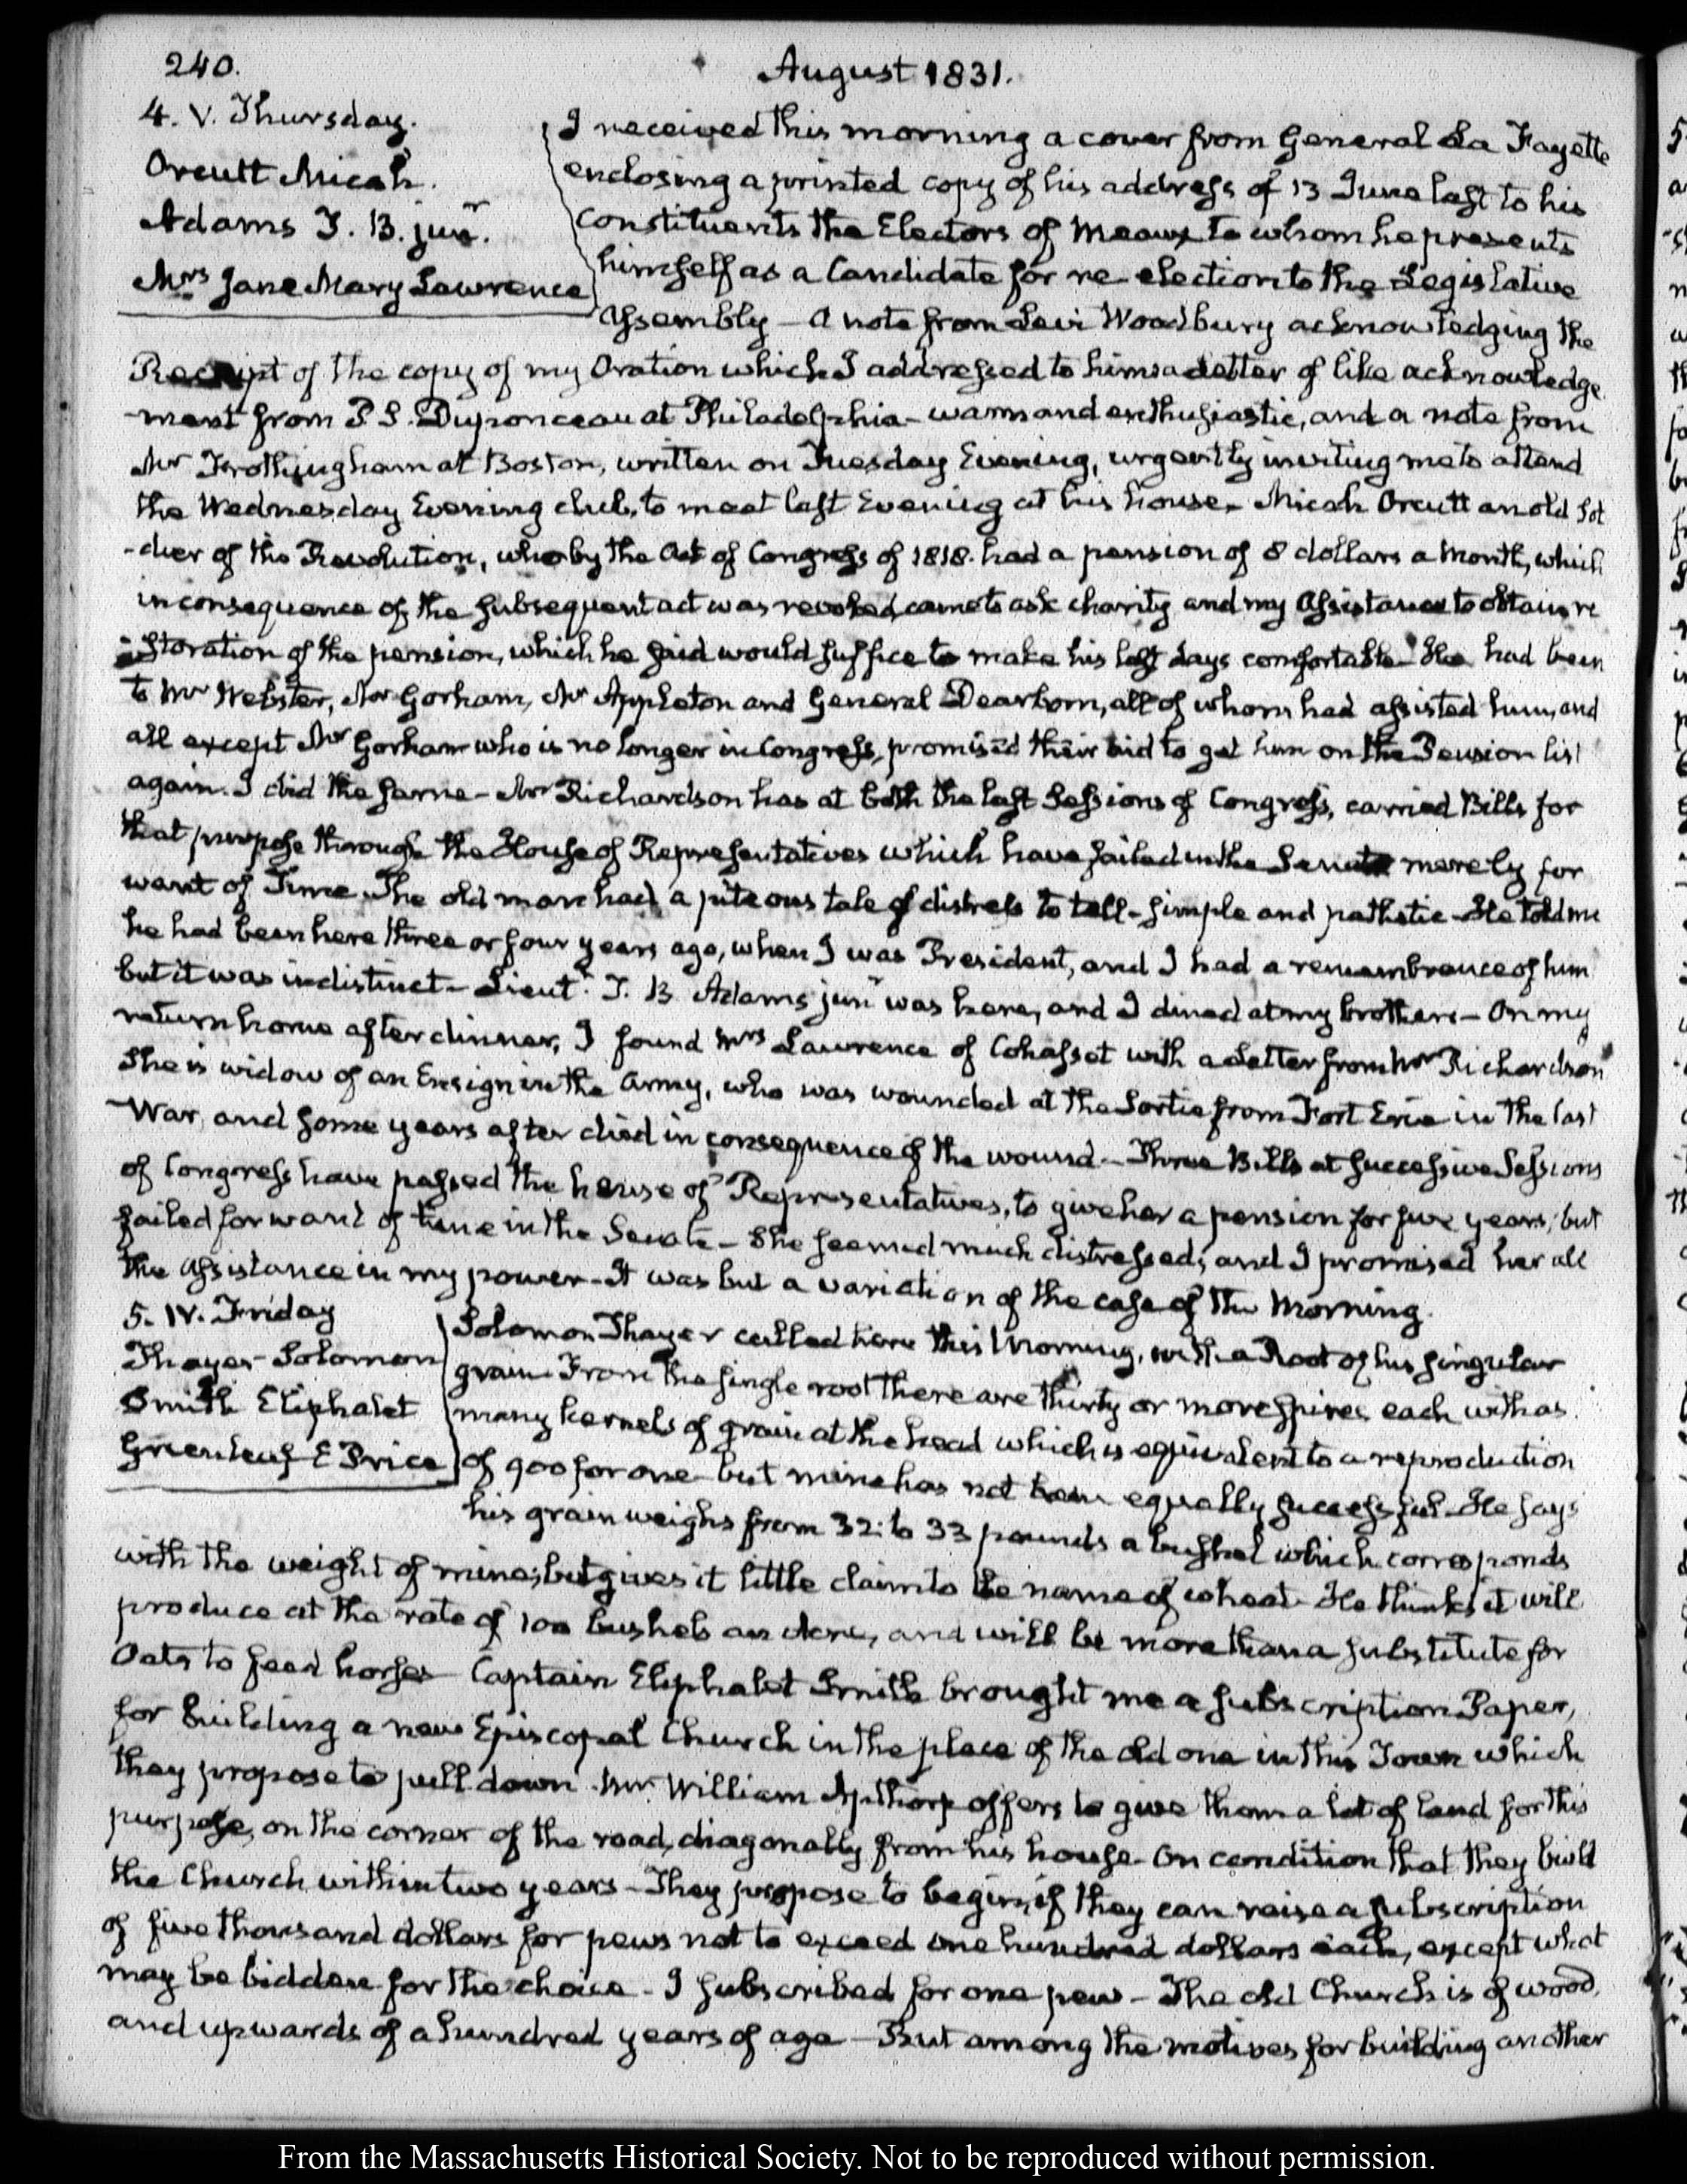 240.
August 1831.
4. V. Thursday.
Orcutt Micah.
Adams J. B. junr.
Mrs Jane Mary Lawrence
I received this morning a cover from General La Fayette
enclosing a printed copy of his address of 13 June last to his
Constituents the Electors of Meaux to whom he presents
himself as a Candidate for re-election to the Legislative
Assembly — A note from Levi Woodbury acknowledging the
Receipt of the copy of my Oration which I addressed to him a Letter of like acknowledge
-ment from P. S. Duponceau at Philadelphia — warm and enthusiastic, and a note from
Mr Frothingham at Boston, written on Tuesday Evening, urgently inviting me to attend
the Wednesday Evening club, to meet last Evening at his house — Micah Orcutt an old Sol
-dier of the Revolution, who by the Act of Congress of 1818. had a pension of 8 dollars a Month, which
in consequence of the subsequent act was revoked came to ask charity and my Assistance to obtain re
-storation of the pension, which he said would suffice to make his last days comfortable. He had been
to Mr Webster, Mr Gorham, Mr Appleton and General Dearborn, all of whom had assisted him, and
all except Mr Gorham who is no longer in Congress, promised their aid to get him on the Pension list
again. I did the same — Mr Richardson has at both the last Sessions of Congress, carried Bills for
that purpose through the House of Representatives which have failed in the Senate merely for
want of Time. The old man had a piteous tale of distress to tell — simple and pathetic — He told me
he had been here three or four years ago, when I was President, and I had a remembrance of him
but it was indistinct — Lieut. J. B. Adams junr was here, and I dined at my brother's — On my
return home after dinner, I found Mrs Lawrence of Cohasset with a Letter from Mr Richardson
She is widow of an Ensign in the Army, who was wounded at the Sortie from Fort Erie in the last
War, and some years after died in consequence of the wound — Three Bills at successive Sessions
of Congress have passed the house of Representatives, to give her a pension for five years, but
failed for want of time in the Senate — She seemed much distressed; and I promised her all
the assistance in my power — It was but a variation of the case of the Morning.
5. IV. Friday
Thayer Solomon
Smith Eliphalet
Greenleaf E Price
Solomon Thayer called here this Morning, with a Root of his singular
grain From the single root there are thirty or more spires each with as
many kernels of grain at the head which is equivalent to a reproduction
of 900 for one — but mine has not been equally successful — He says
his grain weighs from 32 to 33 pounds a bushel which corresponds
with the weight of mine; but gives it little claim to the name of wheat — He thinks it will
produce at the rate of 100 bushels an Acre, and will be more than a substitute for
Oats to feed horses — Captain Eliphalet Smith brought me a subscription Paper,
for building a new Episcopal Church in the place of the old one in this Town which
they propose to pull down. Mr William Apthorp offers to give them a lot of land for this
purpose, on the corner of the road, diagonally from his house — On condition that they build
the Church within two years — They propose to begin, if they can raise a subscription
of five thousand dollars for pews not to exceed one hundred dollars each, except what
may be bidden for the choice — I subscribed for one pew — The old Church is of wood,
and upwards of a hundred years of age — But among the motives for building another
From the Massachusetts Historical Society. Not to be reproduced without permission.